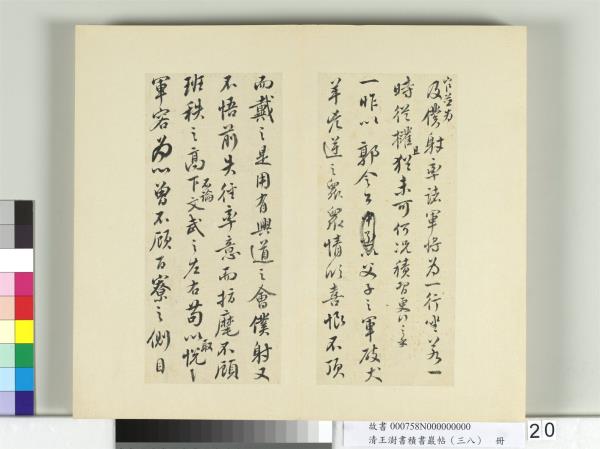 官並为
及僕射率諸軍将為一行坐若一
時從權且猶未可何況積習更行之乎
一昨以郭令公父子之軍破犬
羊兇逆之眾眾情欣喜恨不頂
而戴之是用有興道之會僕射又
不悟前失徑率意而指麾不顧
班秩之高下不論文武之左右苟以取悅
軍容為心曾不顧百寮之側目
故書 000758N000000000
清王澍書積書巖帖（三八） 冊
20